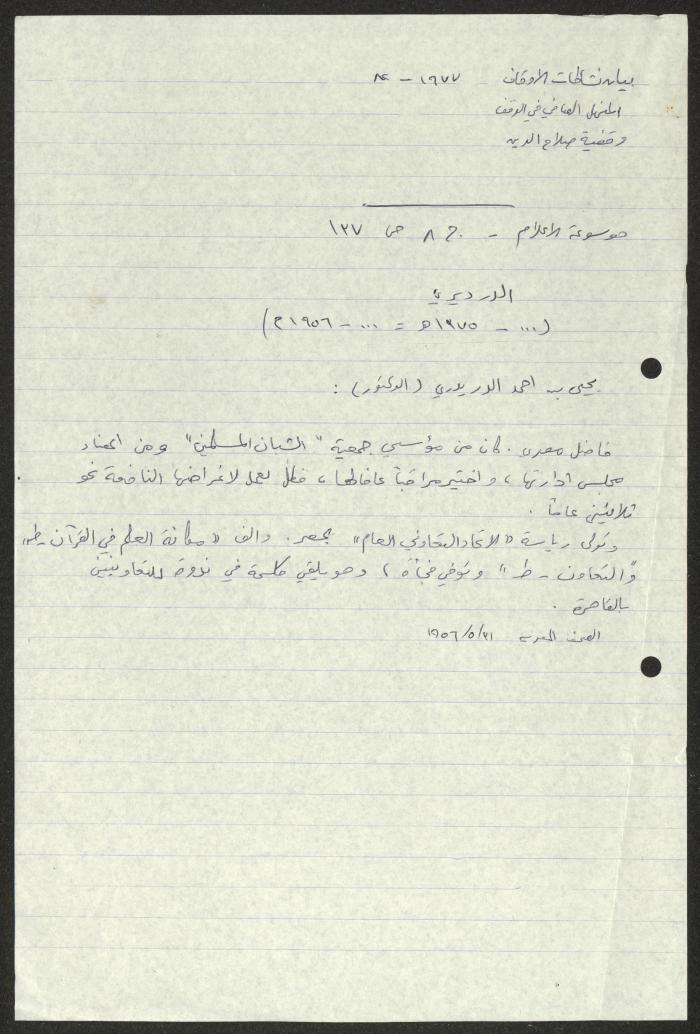 بيان نشاطات الأوقاف ١٩٧٧ - ٨٤
المنهل الصافي في الوقف
وقفية صلاح الدين
موسوعة الاعلام - ج ٨ ص ١٣٧
الدرديري
(... - ١٣٧٥ هـ = ... - ١٩٥٦ م)
يحيى بن احمد الدرديري (الدكتور) :
فاضل مصري . كان من مؤسسي جمعية "الشبان المسلمين" ومن اعضاء
مجلس ادارتها ، واختير مراقباً عاماً لها ، فظل يعمل لاغراضها النافعة نحو
ثلاثين عاماً .
وتولى رياسة "الاتحاد التعاوني العام" بمصر . والف "مكانة العلم في القرآن - ط"
و"التعاون - ط" وتوفي فجأة ، وهو يلقي كلمة في ندوة للتعاونيين
بالقاهرة .
الصحف المصرية ٢١/٥/١٩٥٦